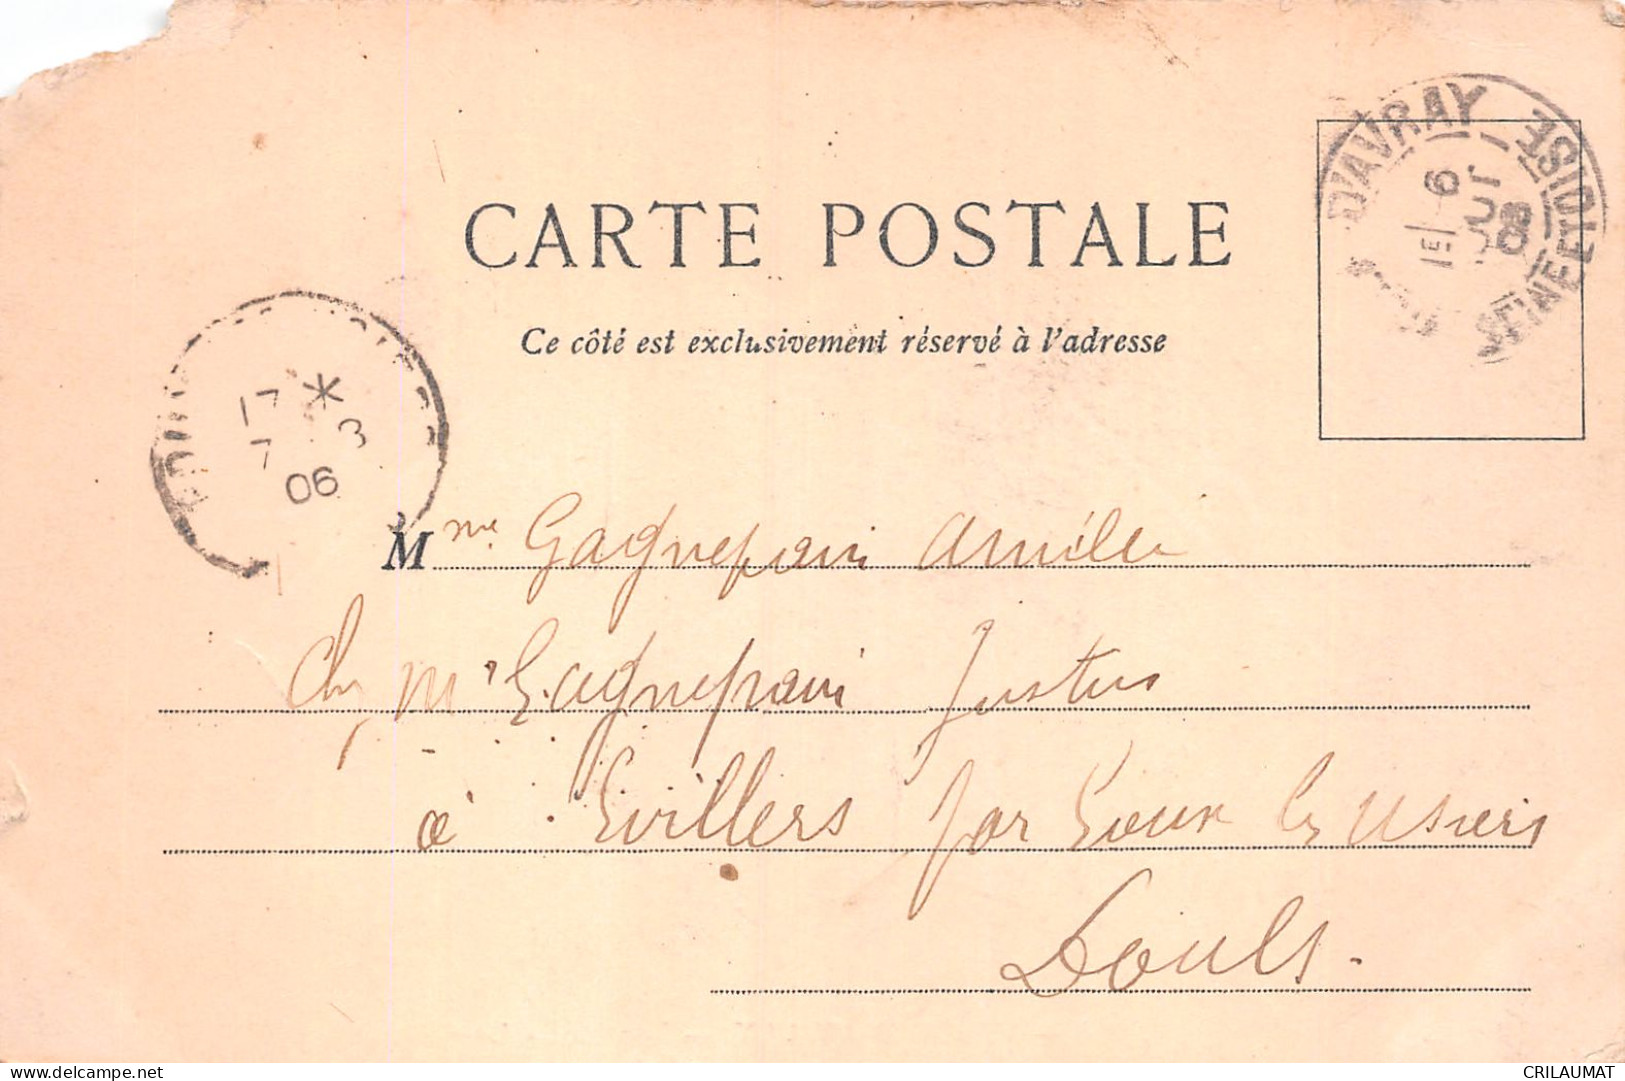 D'AVRAY
SEINE ET OISE
1E
6
08
CARTE POSTALE
Ce côté est exclusivement réservé à l'adresse
17 *
7 3
06
Mme Gagnepain
Chez Mr Gagnepain Justus
à Evillers par Soux les Usiers
Doubs.
delcampe.net
CRILAUMAT